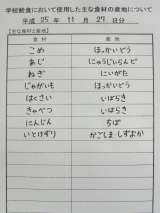 学校給食において使用した主な食材の産地について
平成 25 年 11 月 27 日分
【主な食材と産地】
食材 産地
こめ ほっかいどう
あじ にゅうじーらんど
ねぎ にいがた
じゃがいも ほっかいどう
はくさい いばらき
きゃべつ いばらき
にんじん ちば
いとけずり かごしま しずおか